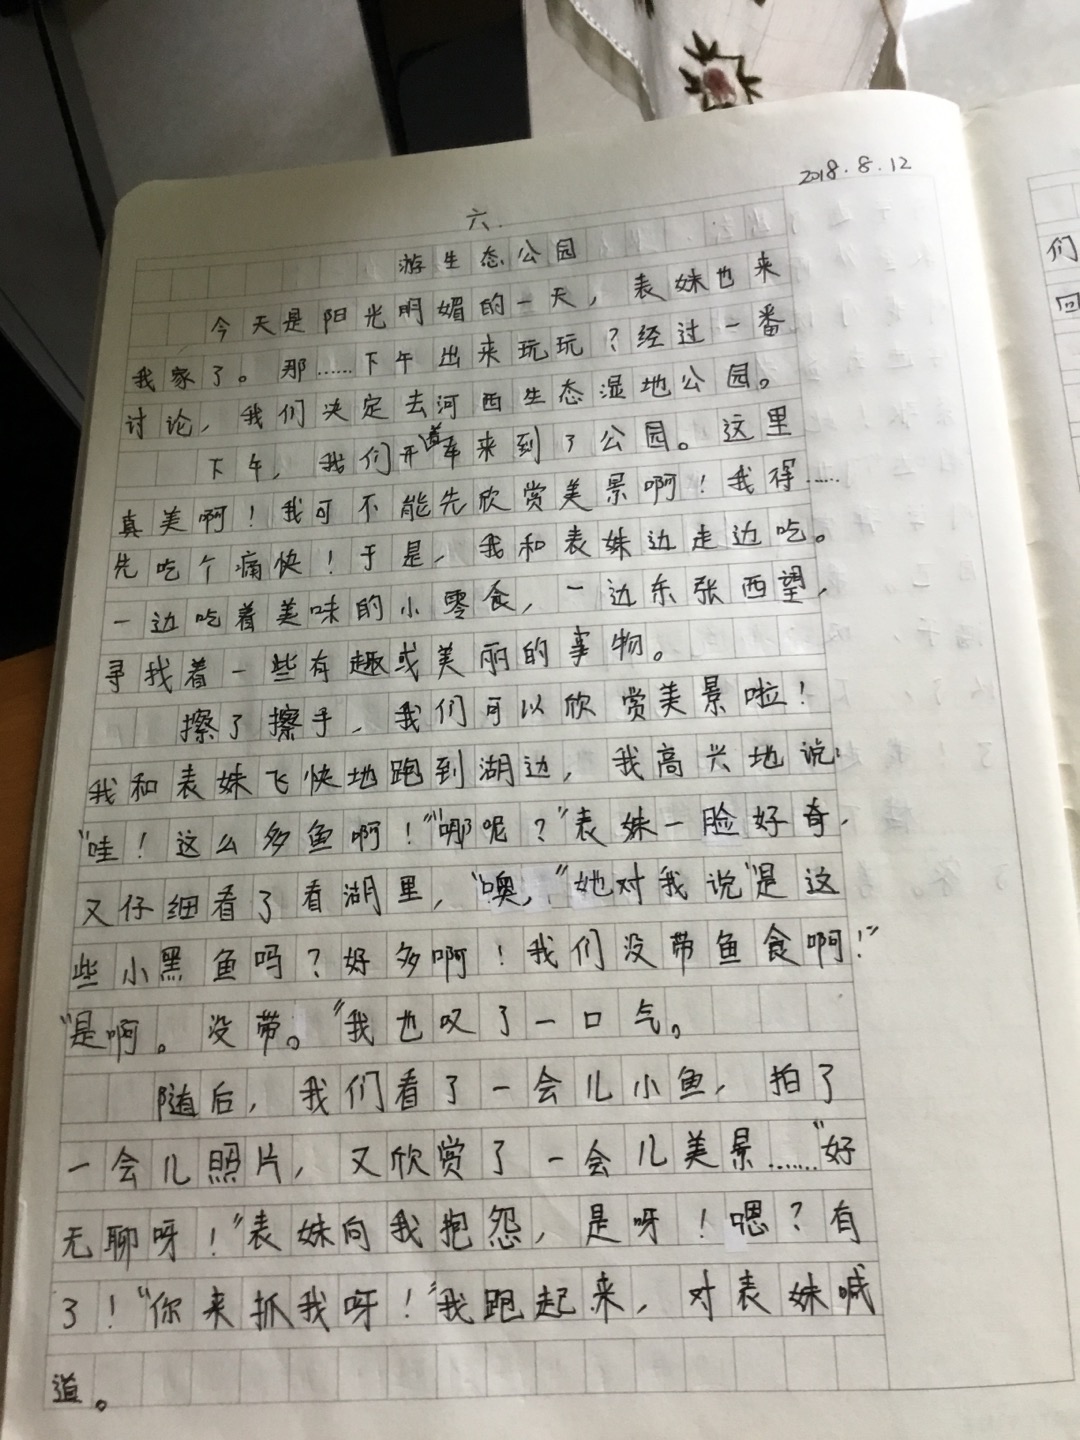 2018.8.12
六.
游生态公园
今天是阳光明媚的一天，表妹也来
我家了。那……下午出来玩玩？经过一番
讨论，我们决定去河西生态湿地公园。
下午，我们开着车来到了公园。这里
真美啊！我可不能先欣赏美景啊！我得……
先吃个痛快！于是，我和表妹边走边吃。
一边吃着美味的小零食，一边东张西望，
寻找着一些有趣或美丽的事物。
擦了擦手，我们可以欣赏美景啦！
我和表妹飞快地跑到湖边，我高兴地说：
“哇！这么多鱼啊！”“哪呢？”表妹一脸好奇，
又仔细看了看湖里，“噢，”她对我说“是这
些小黑鱼吗？好多啊！我们没带鱼食啊！”
“是啊。没带。”我也叹了一口气。
随后，我们看了一会儿小鱼，拍了
一会儿照片，又欣赏了一会儿美景……“好
无聊呀！”表妹向我抱怨，是呀！嗯？有
了！“你来抓我呀！”我跑起来，对表妹喊
道。
们
回